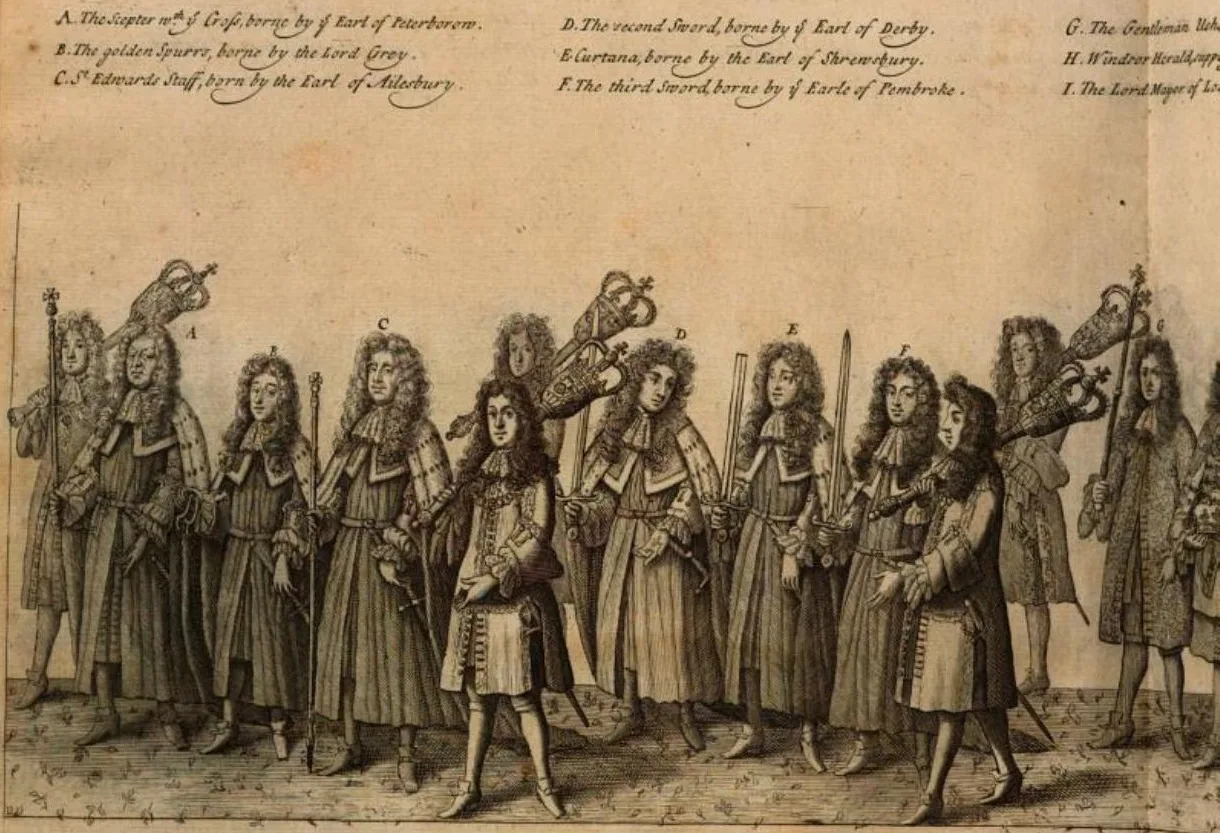 A. The Scepter wth ye Cross, borne by ye Earl of Peterborow.
B. The golden Spurrs, borne by the Lord Grey.
C. St Edwards Staff, born by the Earl of Ailesbury.
D. The second Sword, borne by ye Earl of Derby.
E. Curtana, borne by the Earl of Shrewsbury.
F. The third Sword, borne by ye Earle of Pembroke.
G. The Gentleman Ush
H. Windsor Herald, supp
I. The Lord Mayor of Lo
A
B
C
D
E
F
G